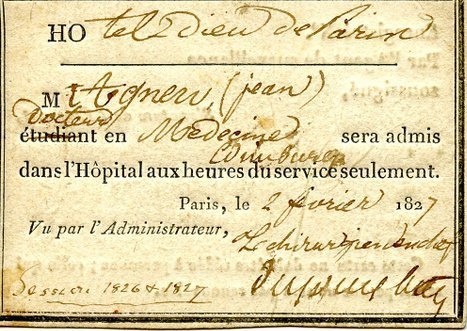 HOtel Dieu de Paris
M Agnew (jean)
Docteur
étudiant en Medecine sera admis
Edimburg
dans l'Hôpital aux heures du service seulement.
Paris, le 2 février 1827
Vu par l'Administrateur,
Le chirurgien en chef
Dupuytren
Session 1826 & 1827